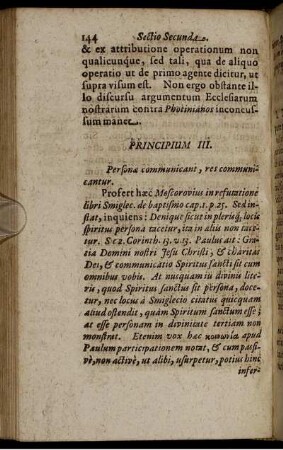 144 Sectio Secunda.
& ex attributione operationum non
qualicunque, sed tali, qua de aliquo
operatio ut de primo agente dicitur, ut
supra visum est. Non ergo obstante il-
lo discursu argumentum Ecclesiarum
nostrarum contra Photinianos inconcus-
sum manet.
PRINCIPIUM III.
Personæ communicant, res communi-
cantur.
Profert hæc Moscorovius in refutatione
libri Smiglec. de baptismo cap. 1. p. 25. Sed in-
stat, inquiens: Denique sicut in plerisq; locis
spiritus persona tacetur, ita in aliis non tace-
tur. Sc 2. Corinth. 13. v. 13. Paulus ait: Gra-
tia Domini nostri Jesu Christi, & charitas
Dei, & communicatio Spiritus sancti sit cum
omnibus vobis. At nusquam ii divinis lite-
ris, quod Spiritus sanctus sit persona, doce-
tur, nec locus à Smiglecio citatus quicquam
aliud ostendit, quàm Spiritum sanctum esse;
at esse personam in divinitate tertiam non
monstrat. Etenim vox hæc κοινωνία apud
Paulum participationem notat, & cum passi-
vè, non activè, ut alibi, usurpetur, potius hinc
infer-